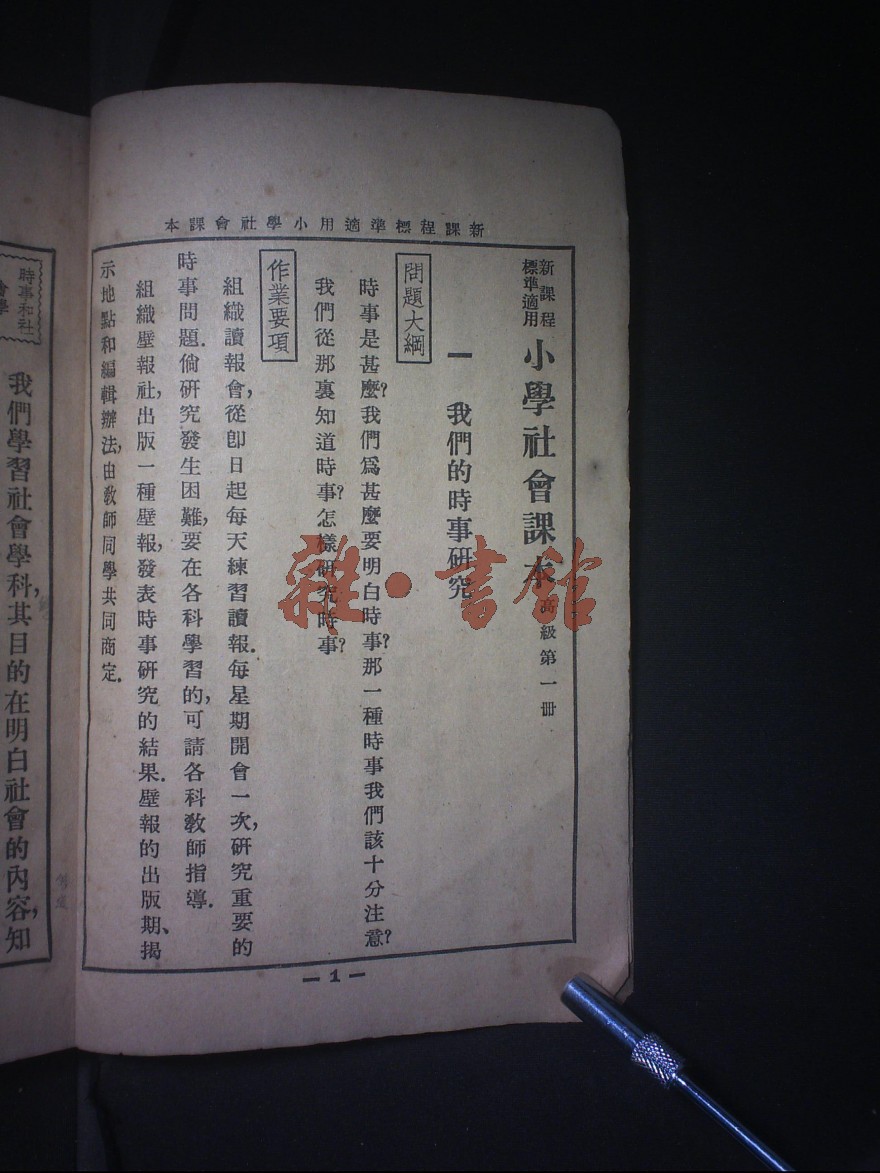 新課程標準適用小學社會課本
新課程標準適用 小學社會課本 高級第一册
一 我們的時事研究
問題大綱
時事是甚麼?我們爲甚麼要明白時事?那一種時事我們該十分注意?
我們從那裏知道時事?怎樣研究時事?
作業要項
組織讀報會,從卽日起每天練習讀報.每星期開會一次,研究重要的
時事問題.倘研究發生困難,要在各科學習的,可請各科教師指導.
組織壁報社,出版一種壁報,發表時事研究的結果.壁報的出版期、揭
示地點和編輯辦法,由教師同學共同商定.
—1—
時事和社
會學
我們學習社會學科,其目的在明白社會的內容,知
雜·書館